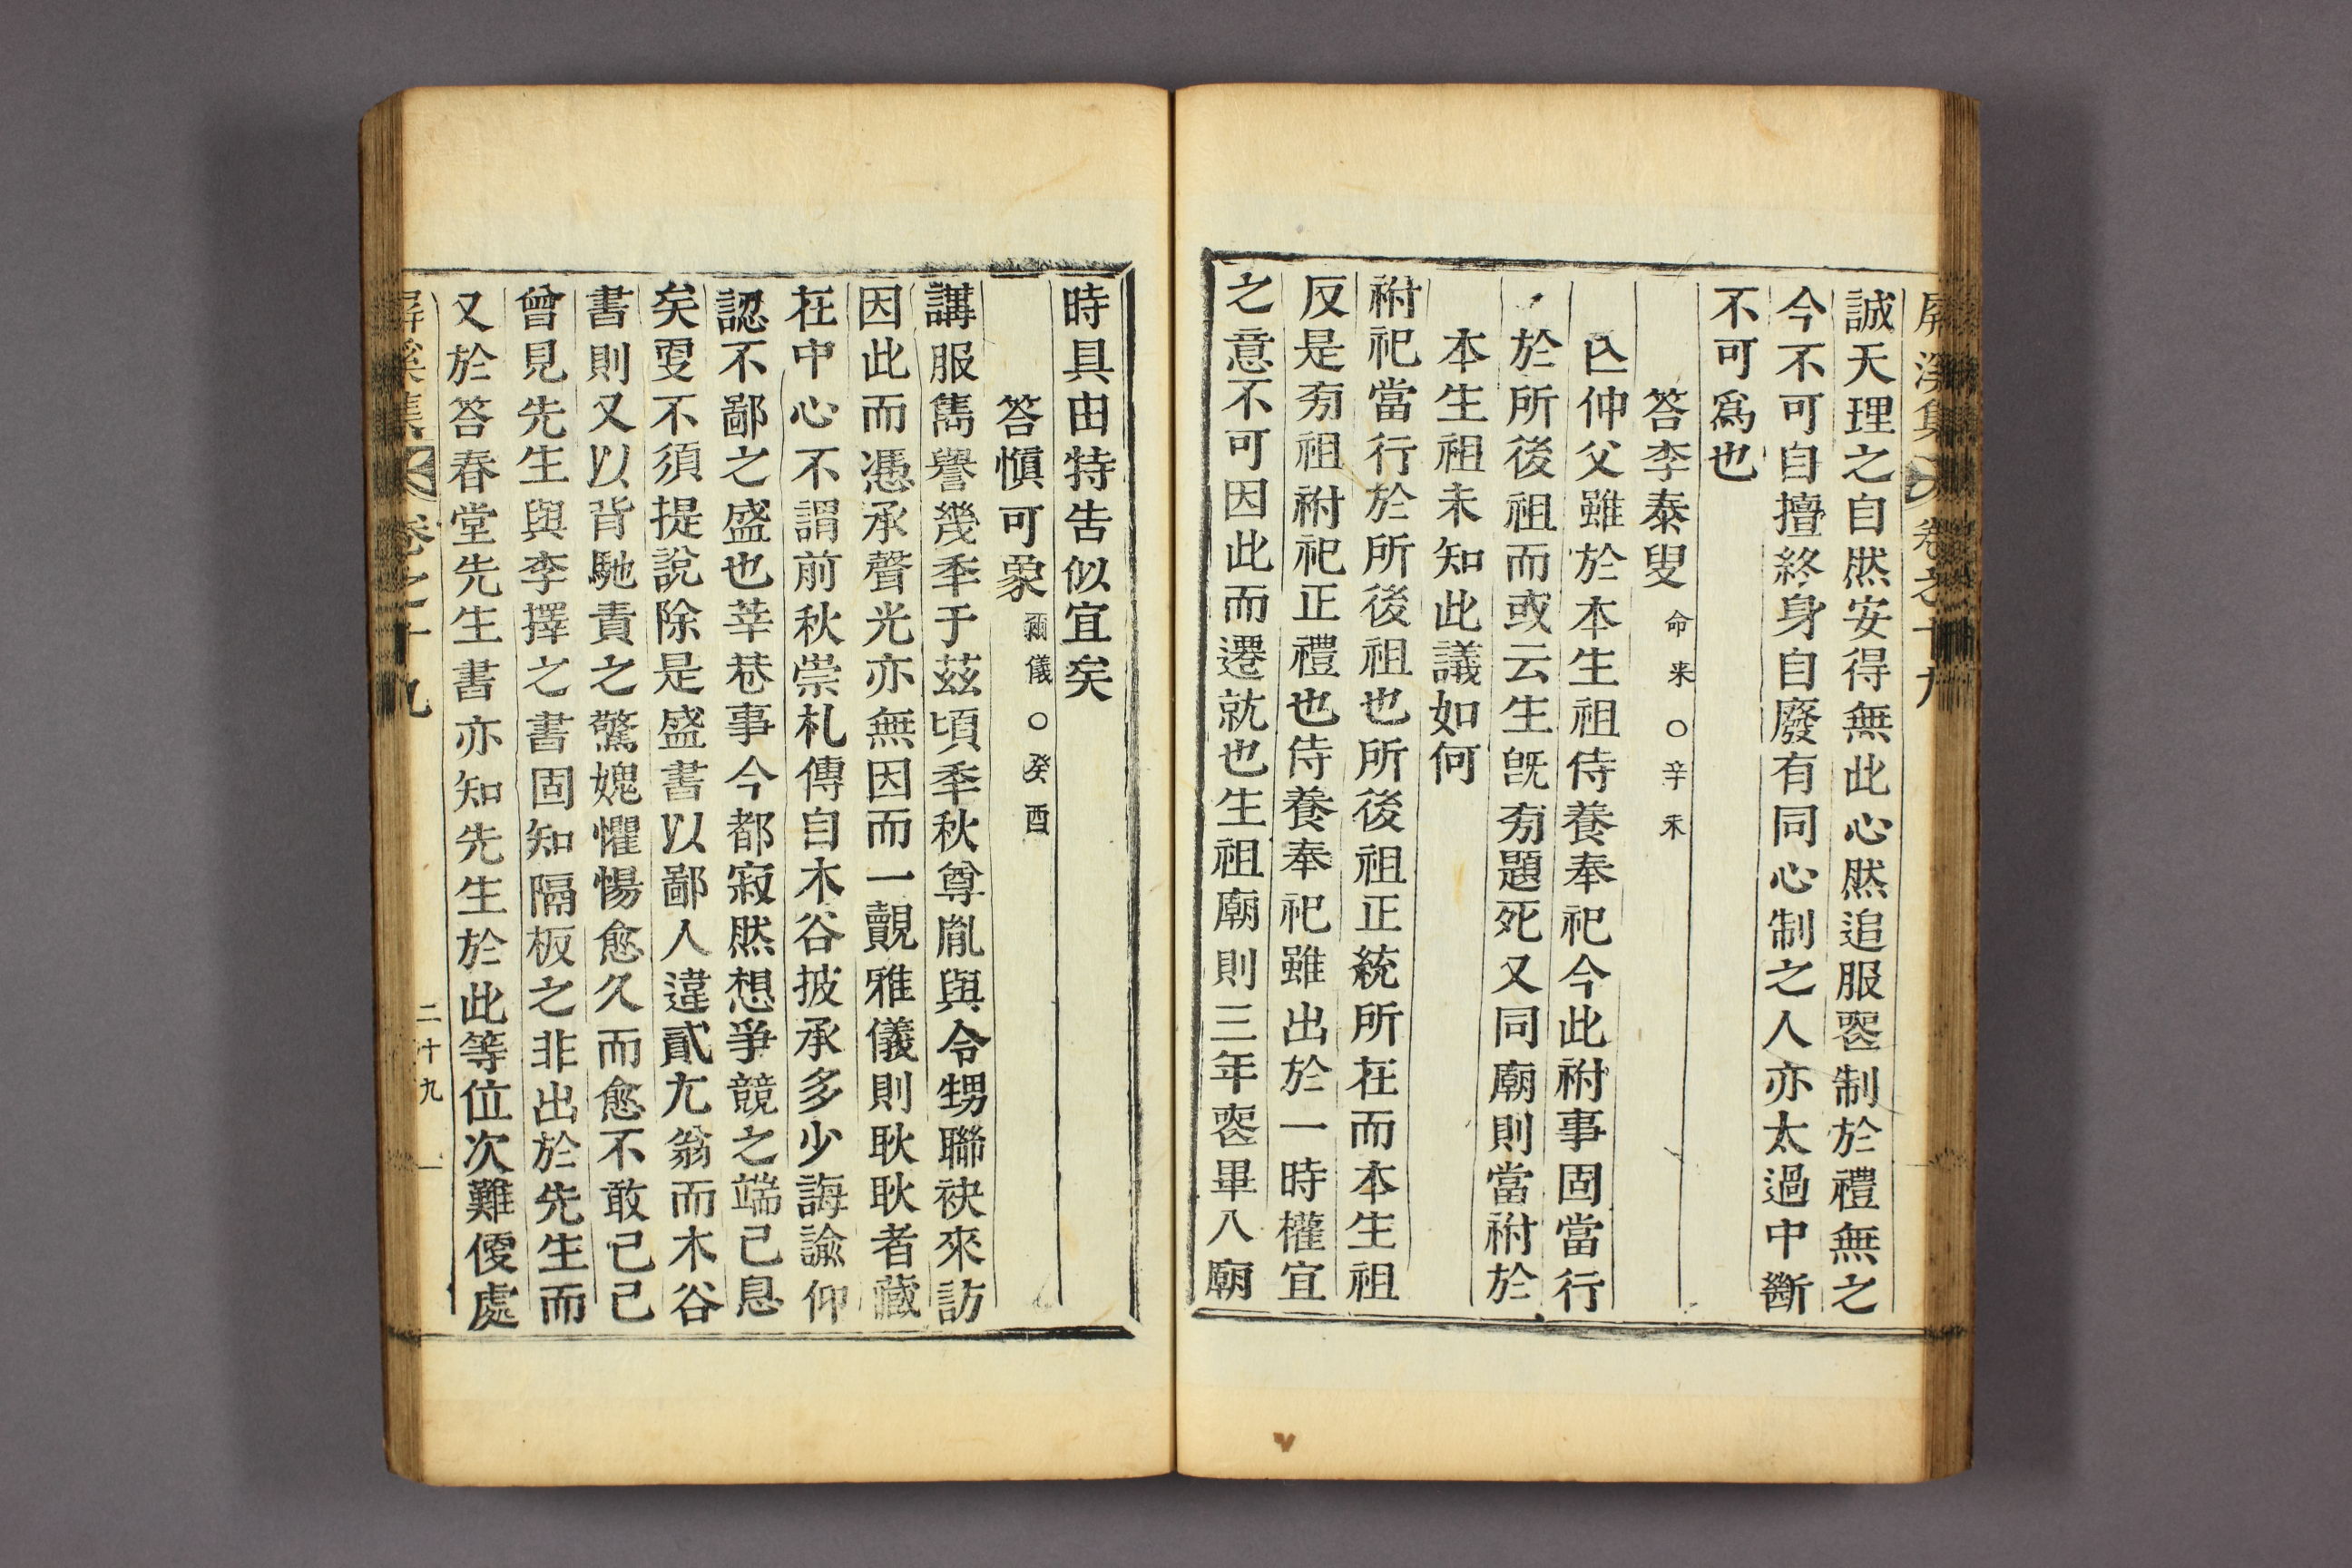 屛溪集 卷之十九
誠天理之自然安得無此心然追服喪制於禮無之
今不可自擅終身自廢有同心制之人亦太過中斷
不可爲也
答李泰叟 命来○辛未
亾仲父雖於本生祖侍養奉祀今此祔事固當行
於所後祖而或云生旣有題死又同廟則當祔於
本生祖未知此議如何
祔祀當行於所後祖也所後祖正統所在而本生祖
反是旁祖祔祀正禮也侍養奉祀雖出於一時權宜
之意不可因此而遷就也生祖廟則三年喪畢入廟
時具由特告似宜矣
答愼可象 爾儀○癸酉
講服雋譽幾年于玆頃年秋尊胤與令甥聯袂來訪
因此而憑承聲光亦無因而一覿雅儀則耿耿者藏
在中心不謂前秋崇札傳自木谷披承多少誨諭仰
認不鄙之盛也莘巷事今都寂然想爭競之端已息
矣更不須提說除是盛書以鄙人違貳尤翁而木谷
書則又以背馳責之驚媿懼惕愈久而愈不敢已已
曾見先生與李擇之書固知隔板之非出於先生而
又於答春堂先生書亦知先生於此等位次難便處
屛溪集 卷之十九 二十九